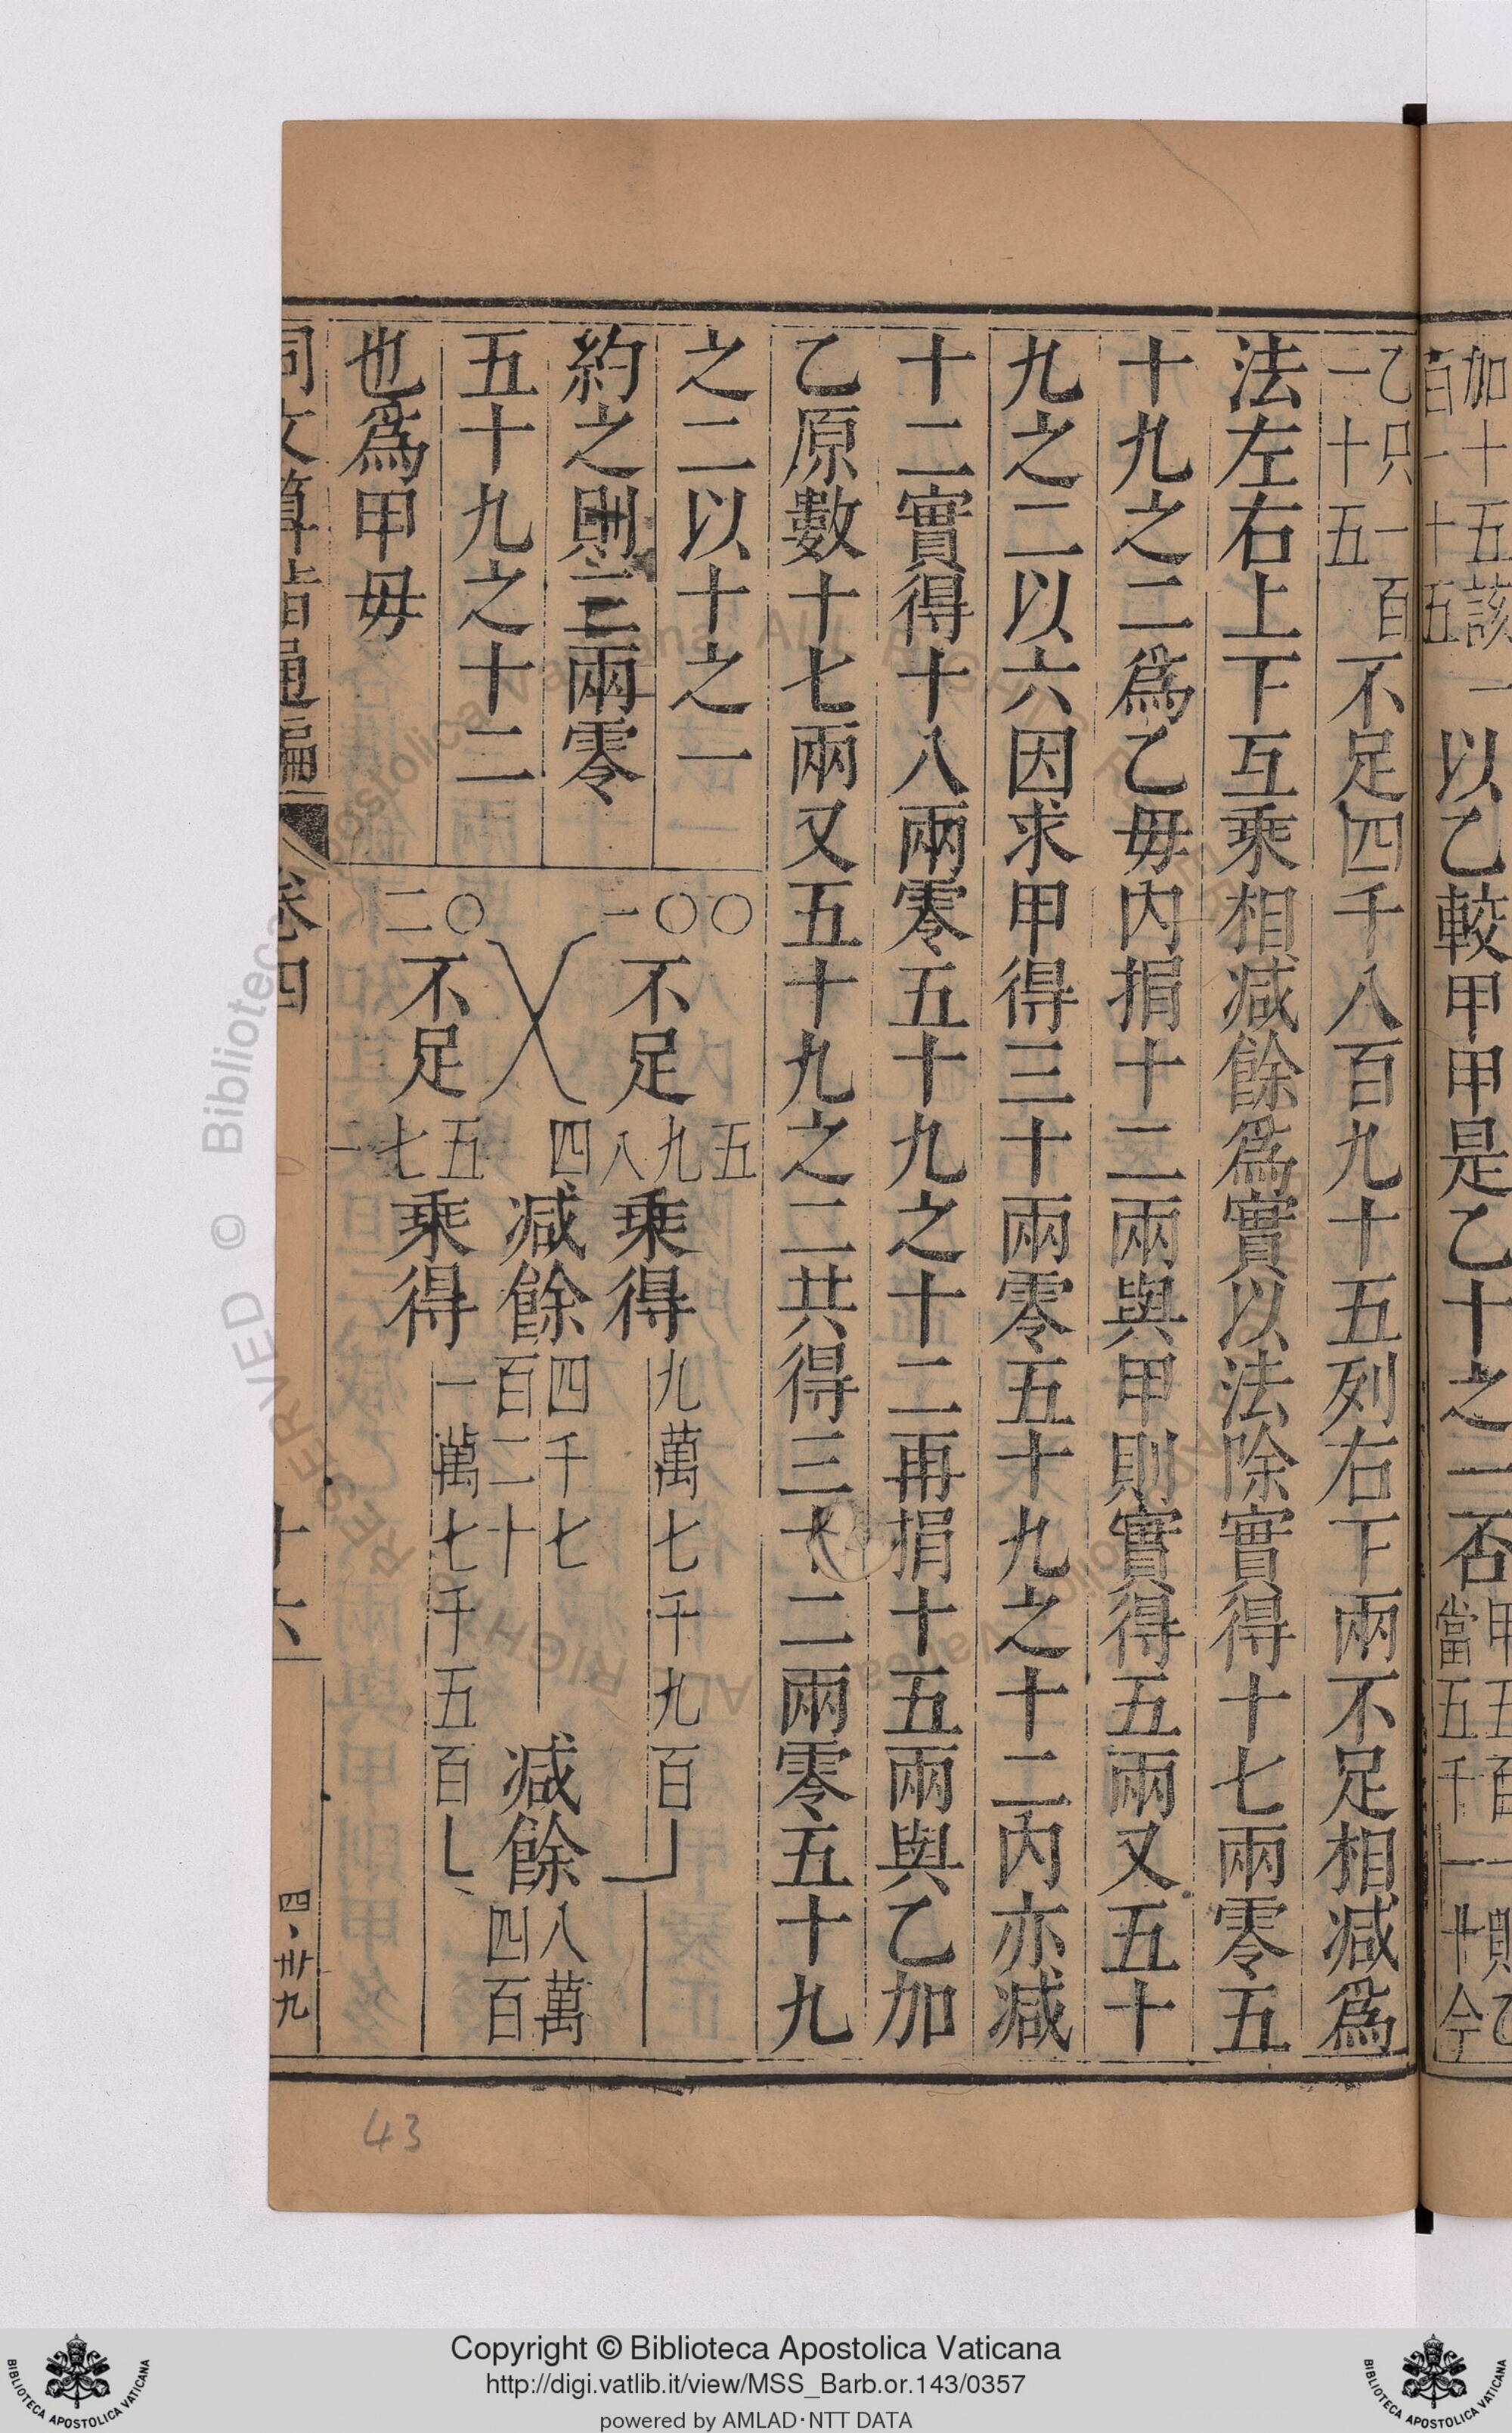 加十五該一
百一十五
以乙較甲甲是乙十之一否
甲五百一則乙
當五千一十今
乙只一百
一十五
不足四千八百九十五列右下兩不足相減爲
法左右上下互乘相減餘爲實以法除實得十七兩零五
十九之二爲乙毋內捐十二兩與甲則實得五兩又五十
九之二以六因求甲得三十兩零五十九之十二內亦減
十二實得十八兩零五十九之十二再捐十五兩與乙加
乙原數十七兩又五十九之二共得三十二兩零五十九
之二以十之一
約之則三兩零
五十九之十二
也爲甲毋
一〇〇 不足 四八九五 乘得 九萬七千九百
減餘 四千七
百二十
減餘 八萬
四百
二〇 不足 一七五 乘得 一萬七千五百
同文算指通編 卷四 十六
四、卅九
43
© Biblioteca Apostolica Vaticana
Copyright © Biblioteca Apostolica Vaticana
http://digi.vatlib.it/view/MSS_Barb.or.143/0357
powered by AMLAD·NTT DATA
BIBLIOTECA APOSTOLICA VATICANA
BIBLIOTECA APOSTOLICA VATICANA